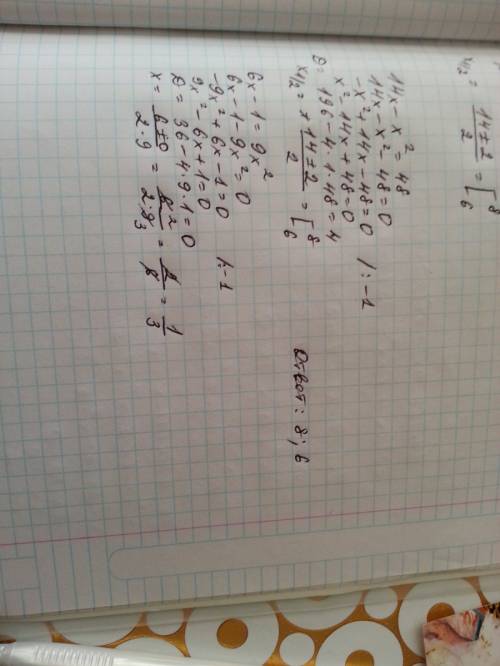 x₁/₂ = (14±2)/2 = [8 6
14x - x² = 48
14x - x² - 48 = 0
-x² + 14x - 48 = 0 /: -1
x² - 14x + 48 = 0
D = 196 - 4·1·48 = 4
x₁/₂ = + (14±2)/2 = [8 6
Ответ: 8; 6
6x - 1 = 9x²
6x - 1 - 9x² = 0
-9x² + 6x - 1 = 0 /: -1
9x² - 6x + 1 = 0
D = 36 - 4·9·1 = 0
x = (6±0)/(2·9) = 6 2/(2·9 3) = 2/6 = 1/3